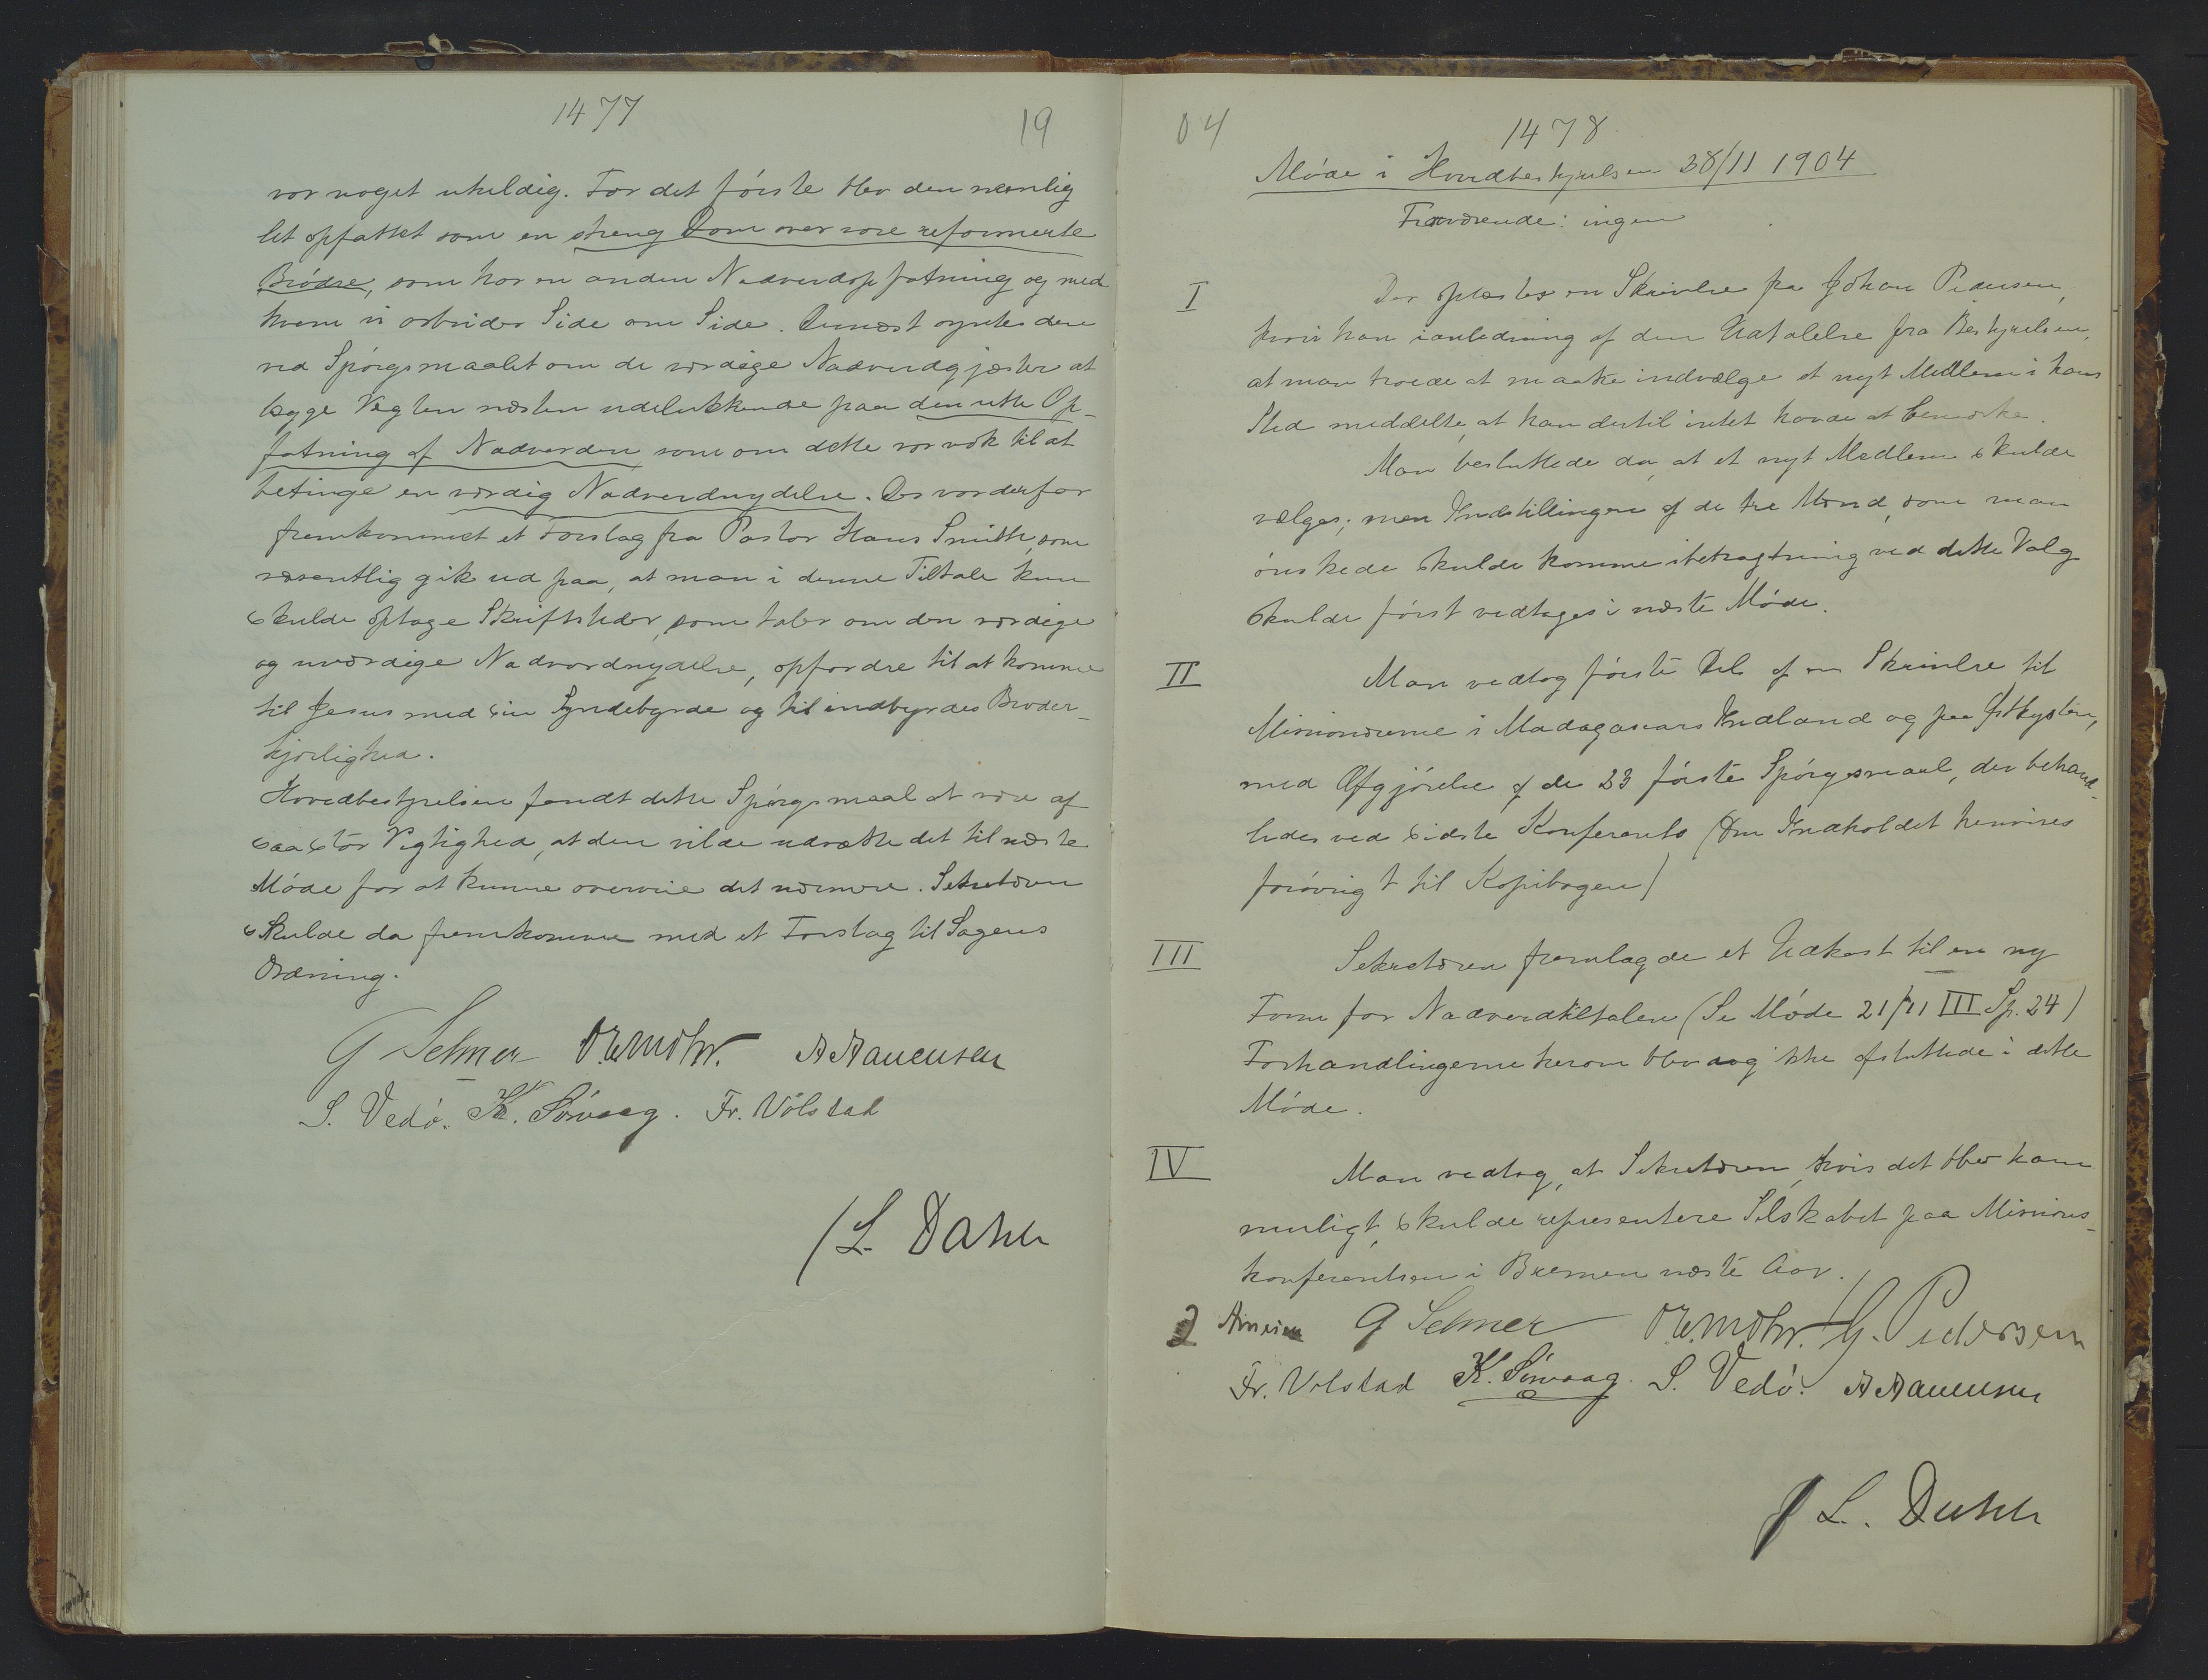 1477
19
var noget uheldig. For det første blev den nemlig
let opfattet som en streng Dom over vore reformerte
Brødre, som har en anden Nadverdopfatning og med
hvem vi arbeider Side om Side. Dernæst syntes den
ved Spørgsmaalet om de værdige Nadverdgjæster at
lægge Vegten næsten udelukkende paa den rette Op-
fatning af Nadverden, som om dette var nok til at
betinge en værdig Nadverdnydelse. Der var derfor
fremkommet et Forslag fra Pastor Hans Smith, som
væsentlig gik ud paa, at man i denne Tiltale kun
skulde optage Skriftsteder, som taler om den værdige
og uværdige Nadverdnydelse, opfordre til at komme
til Jesus med sin Syndebyrde og til indbyrdes Broder-
kjærlighed.
Hovedbestyrelsen fandt dette Spørgsmaal at være af
saa stor Vigtighed, at den vilde udsætte det til næste
Møde for at kunne overveie det nærmere. Sekretæren
skulde da fremkomme med et Forslag til Sagens
Ordning.
G Selmer A Aanensen
S. Vedø. K. Sørvaag. Fr. Völstad
/L. Dahle
04
1478
Møde i Hovedbestyrelsen 28/11 1904
Fraværende: ingen
I Der oplæstes en Skrivelse fra Johan Pedersen,
hvori han i anledning af den Udtalelse fra Bestyrelsen,
at man troede at maatte indvælge et nyt Medlem i hans
Sted meddelte, at han dertil intet havde at bemærke.
Man besluttede da, at et nyt Medlem skulde
vælges; men Indstillingen af de tre Mænd, som man
ønskede skulde komme i betragtning ved dette Valg
skulde først vedtages i næste Møde.
II Man vedtog første Del af en Skrivelse til
Missionærerne i Madagascars Indland og paa Østkysten,
med Afgjørelse af de 23 første Spørgsmaal, der behand-
ledes ved sidste Konferents (Om Indholdet henvises
forøvrigt til Kopibogen)
III Sekretæren fremlagde et Udkast til en ny
Form for Nadverdtiltalen (Se Møde 21/11 III Sp. 24)
Forhandlingerne herom blev dog ikke afsluttede i dette
Møde.
IV Man vedtog, at Sekretæren, hvis det blev ham
muligt, skulde representere Selskabet paa Missions-
konferentsen i Bremen næste Aar.
G Selmer G. Pedersen
Fr. Volstad K. Sørvaag. S. Vedø. A Aanensen
/ L. Dahle